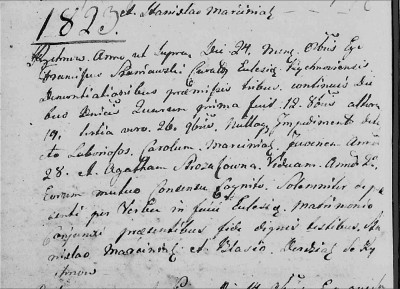 et Stanislao Marciniak
1823.
Rychnow. Anno ut Supra, Die 24. Mens. 9bris Ego
Franciscus Curatus Ecclesiae Rychnoviensis
Denuntiationibus praemissis tribus continuis die
bus Dnicis Quarum prima fuit 12. 8bris altera
19. tertia vero 26. 9bris, Nulloq Impedimento dete
cto Laboriosos. Carolum Marciniak juvenem Annor
28. et Agatham Viduam. Annor
Eorum mutuo Consensu Cognito. Solemniter de prae
senti per Verba in facie Ecclesiae. Matrimonio
Conjunxi praesentibus fide dignis testibus. Sta
nislao Marciniak et Blasio de Ry
chnow